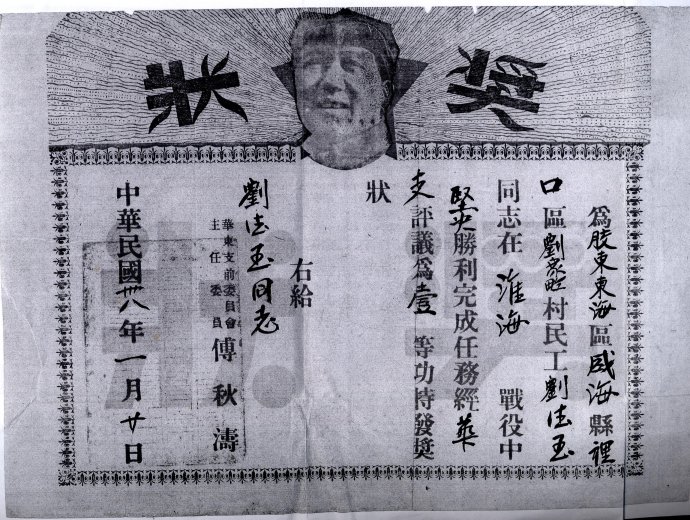 獎狀
爲胶東東海區威海縣裡
口區劉家疃村民工劉法玉
同志在淮海戰役中
堅决勝利完成任務經華
支評議爲壹等功特發獎
狀
右給
劉法玉同志
華東支前委員會
主任委員 傅秋濤
中華民國卅八年一月廿日